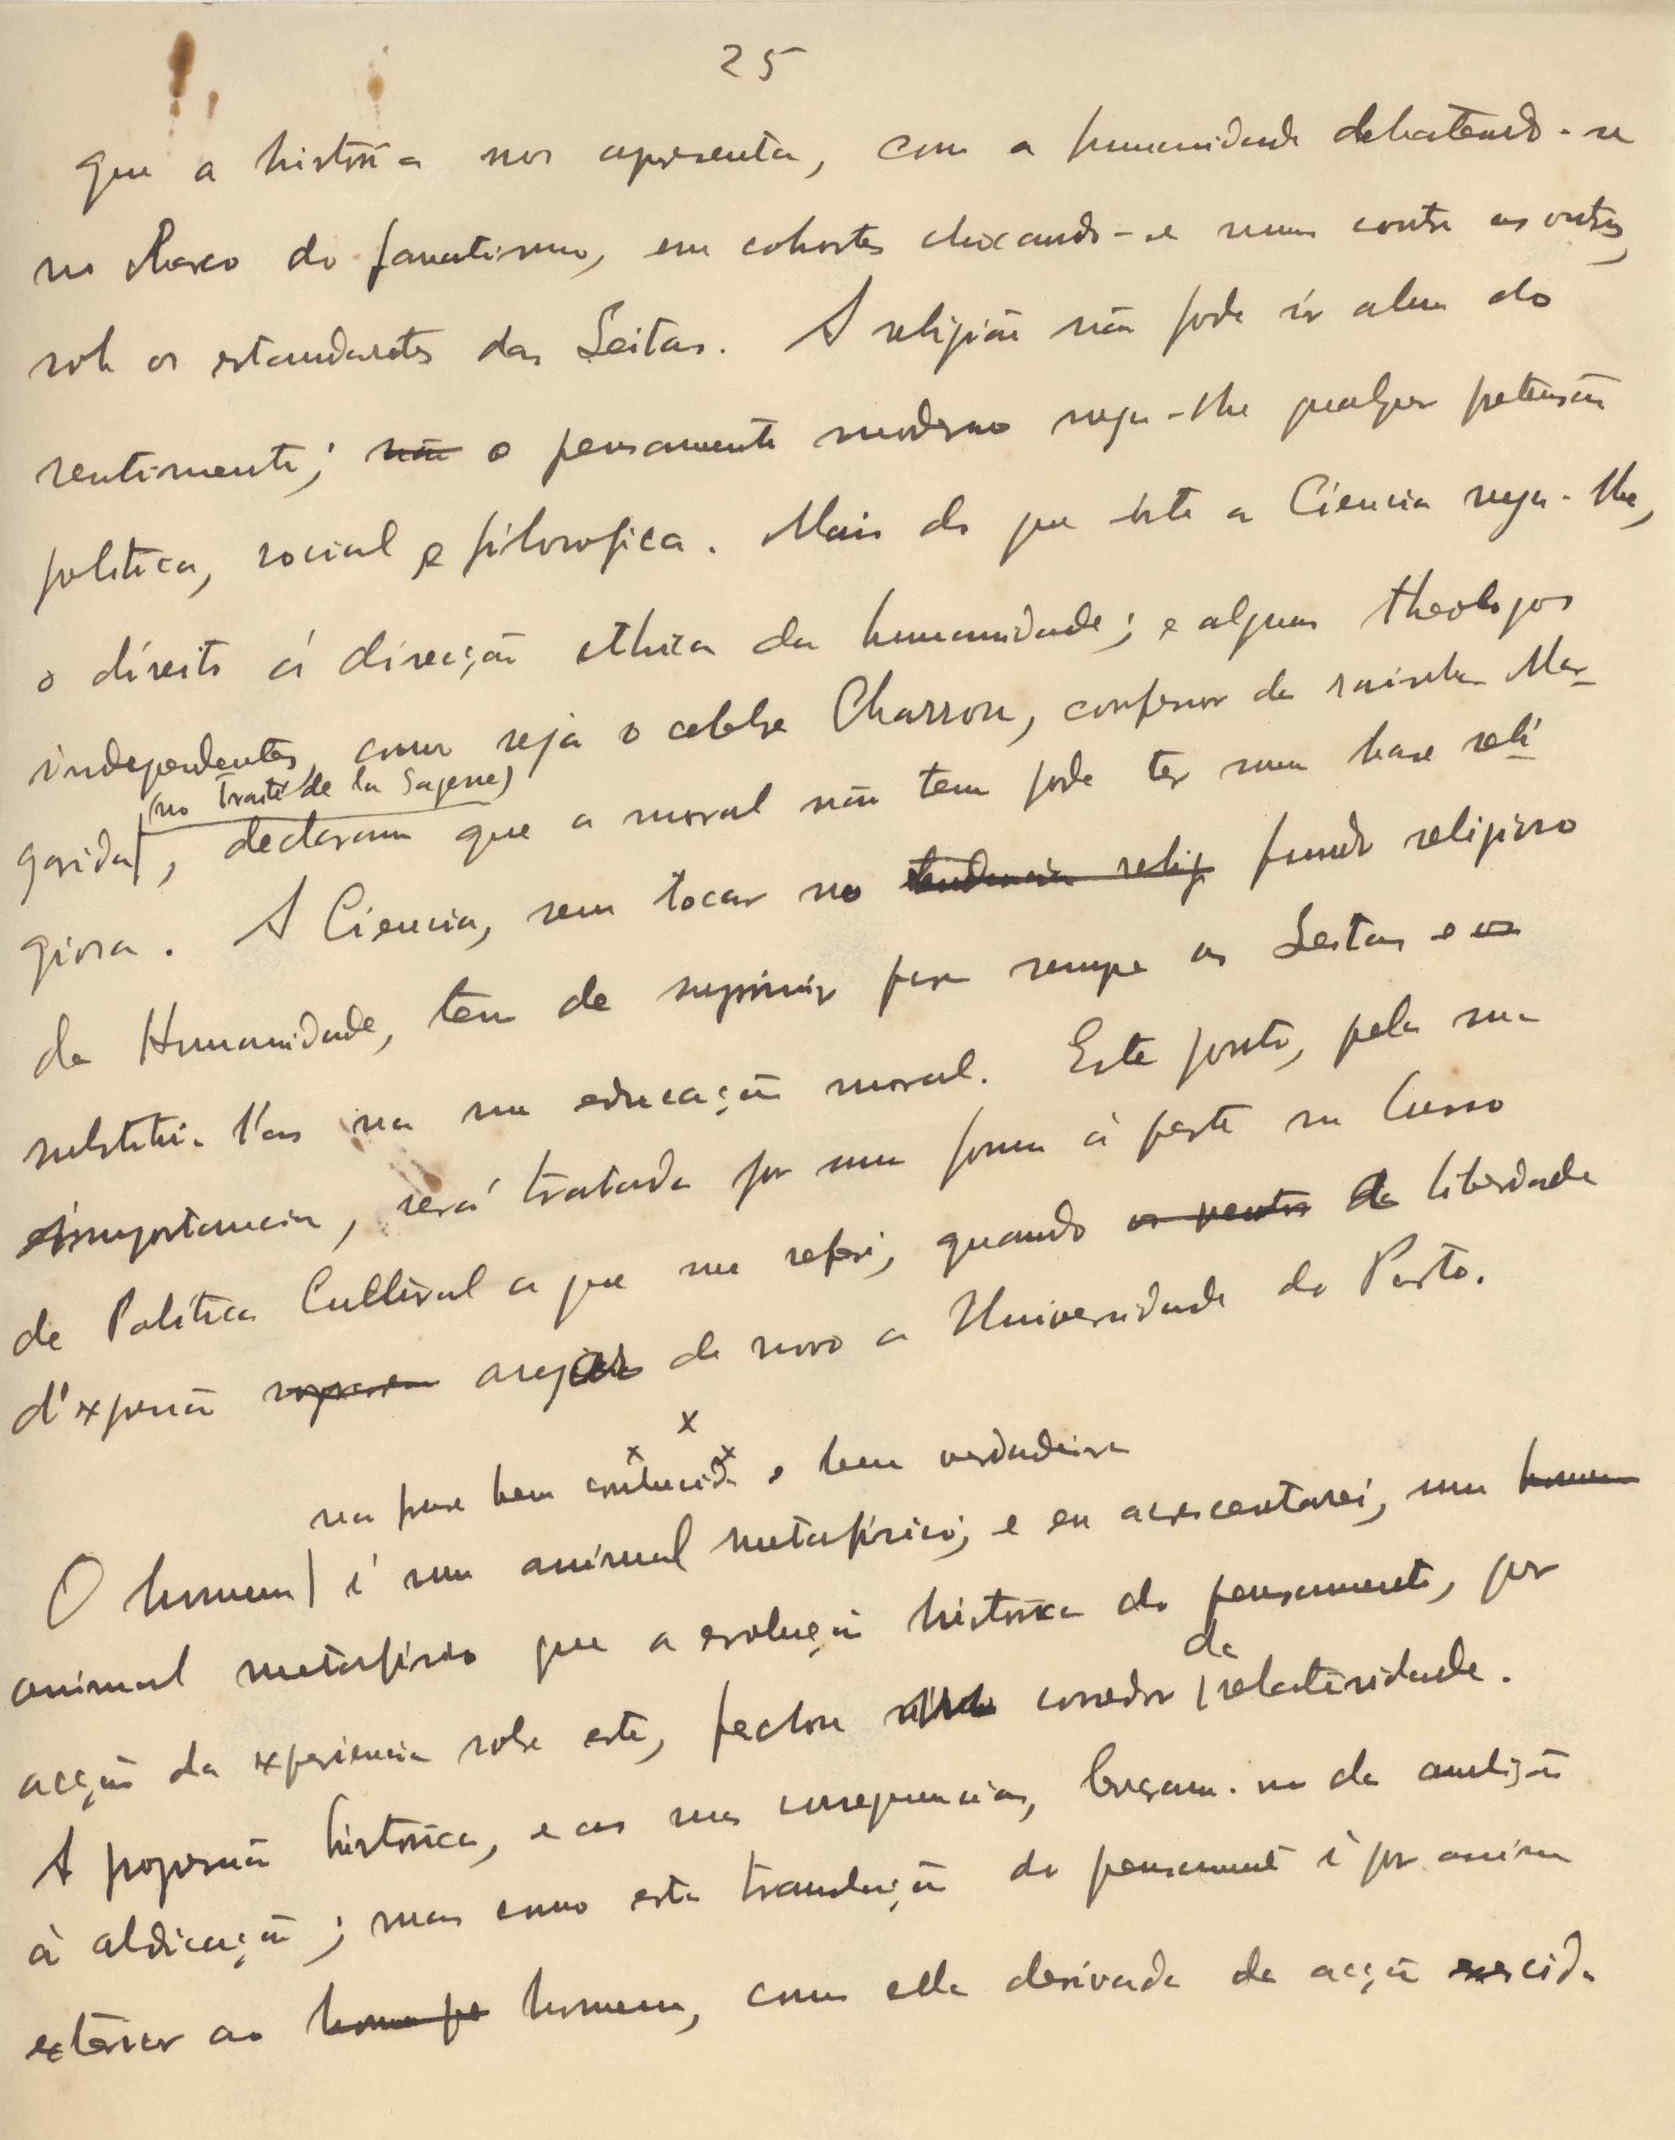 25
que a historia nos apresenta, com a humanidade debatendo-se
no charco do fanatismo, em cohortes chocando-se umas contra as outras,
sob os estandartes das Seitas. A religião não pode ir alem do
sentimento; não o pensamento moderno nega-lhe qualquer pretensão
politica, social e filosofica. Mais do que isto a Ciencia nega-lhe,
o direito á direcção ethica da humanidade; e alguns theologos
independentes, como seja o celebre Charron, confessor da rainha Mar-
(no Traité de la Sagesse)
garida, declaram que a moral não tem pode ter uma base reli-
giosa. A Ciencia, sem tocar no tendencia relig fundo religioso
da Humanidade, tem de suprimir para sempre as Seitas e
substitui-l'as na sua educação moral. Este ponto, pela sua
importancia, será tratado por uma forma á parte no Curso
de Politica Cultural a que me referi, quando os ventos da liberdade
d'expressão arejar de novo a Universidade do Porto.
x x x
na frase bem conhecida e bem verdadeira
O homem é um animal metafisico; e eu acrescentarei, um homem
animal metafisico que a evolução historica do pensamento, por
de
acção da experiencia sobre este, fechou corredor relatividade.
A progressão historica, e as suas consequencias, forçam-no da ambição
à abdicação; mas como esta translação do pensamento é por assim
exterior ao homem, como ella derivada da acção exercida